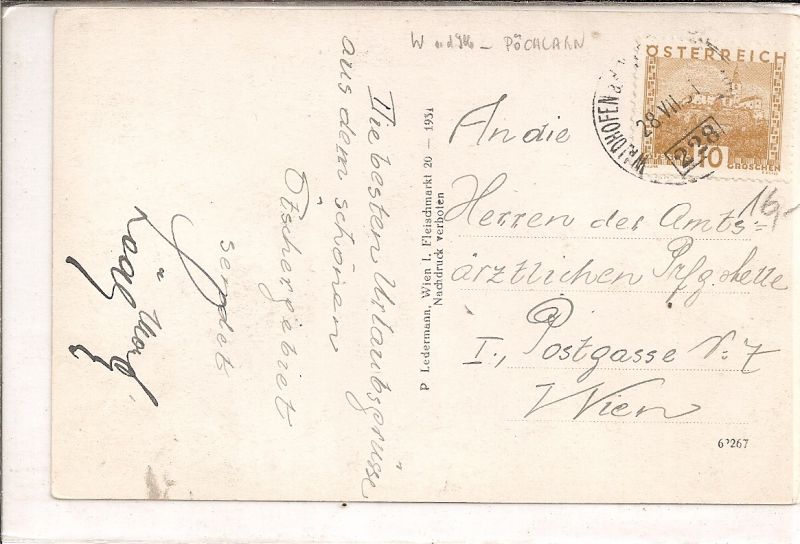 Die besten Urlaubsgrüsse
aus dem schönen
Ötschergebiet
sendet
PÖCHLARN
P Ledermann, Wien I. Fleischmarkt 20 – 1931
Nachdruck verboten
ÖSTERREICH
10
GROSCHEN
WAIDHOFEN
28·VII·31
228
16,-
An die
Herren der Amts=
ärztlichen Prfg.stelle
I., Postgasse Nr. 7
Wien